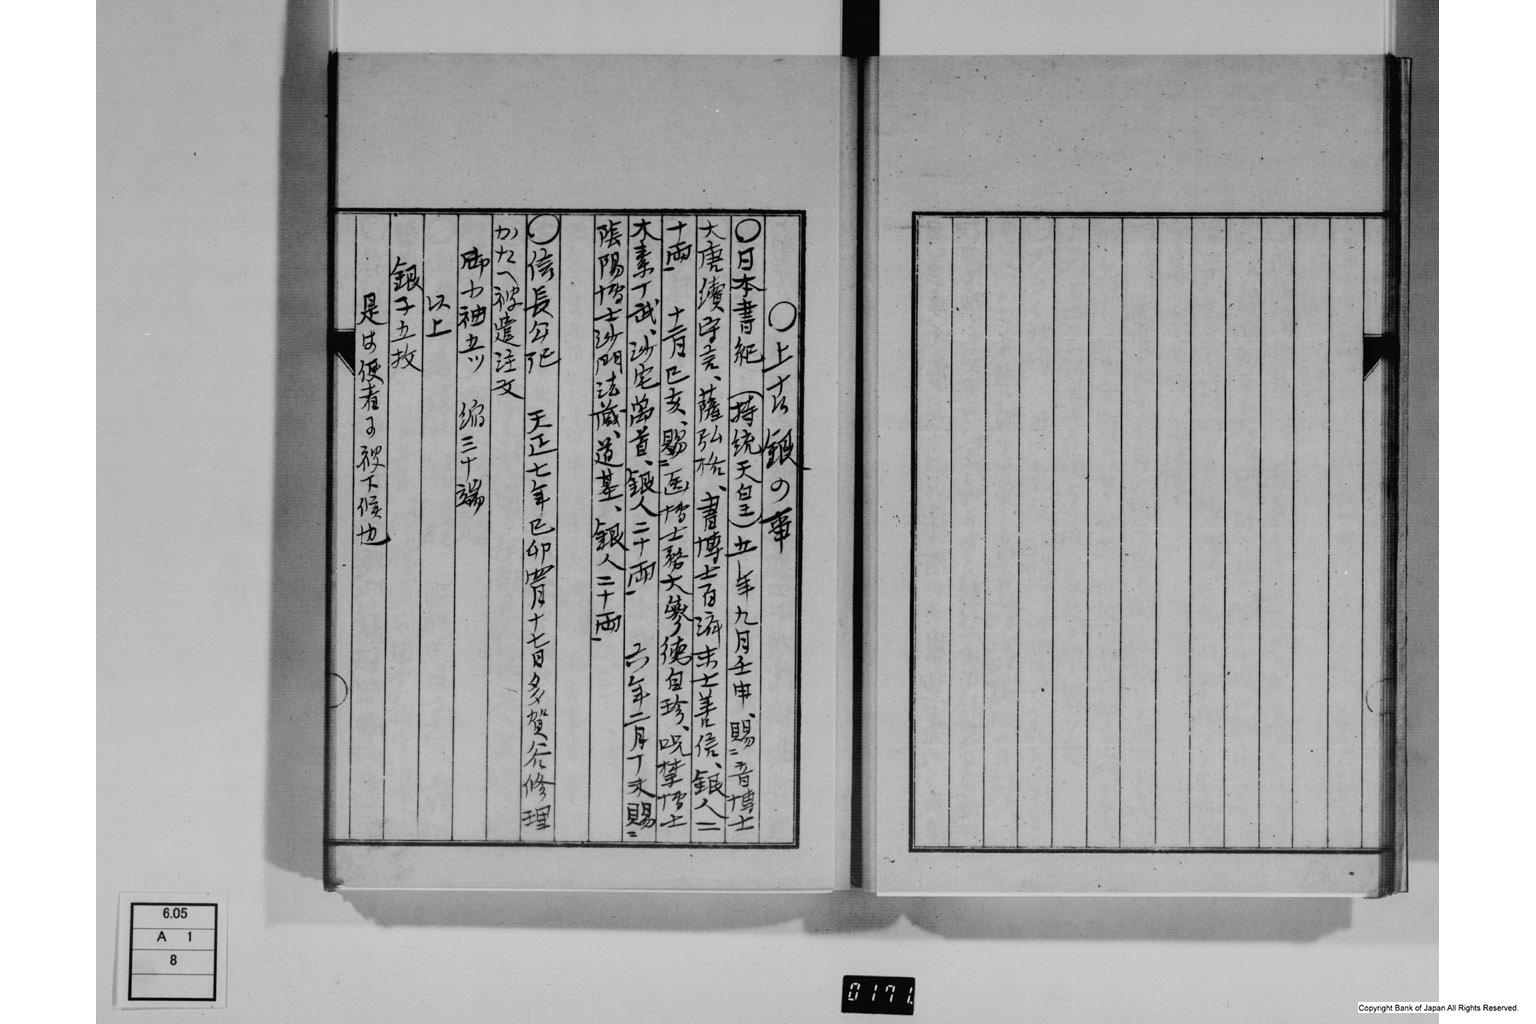 〇上古銀の事
〇日本書紀(持統天皇)五年九月壬申、賜音博士
大唐續守言、薩弘恪、書博士百済末士善信、銀人二
十両、 十二月己亥、賜医博士務大参徳自珍、呪禁博士
木素丁武、沙宅萬首、銀人二十両、 六年二月丁未賜
陰陽博士沙門法蔵、道基、銀人二十両、
〇信長公記 天正七年己卯四月十七日多賀谷修理
かたへ被遣注文
御小袖五ツ 縮三十端
以上
銀子五枚
是は使者に被下候也
6.05
A 1
8
0171
Copyright Bank of Japan All Rights Reserved.